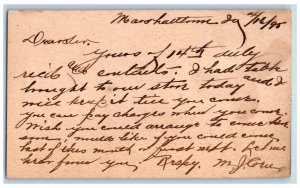 Marshalltown Ia 2/16/95
Dear Sir,
Yours of 14th duly
rec'd & contents. I had
brought to our store today and I
will keep it till you come.
You can pay charges when you come.
Wish you could arrange to come here
some would like if you could come
last of this month or first next. Let me
hear from you, Respy. M. J.